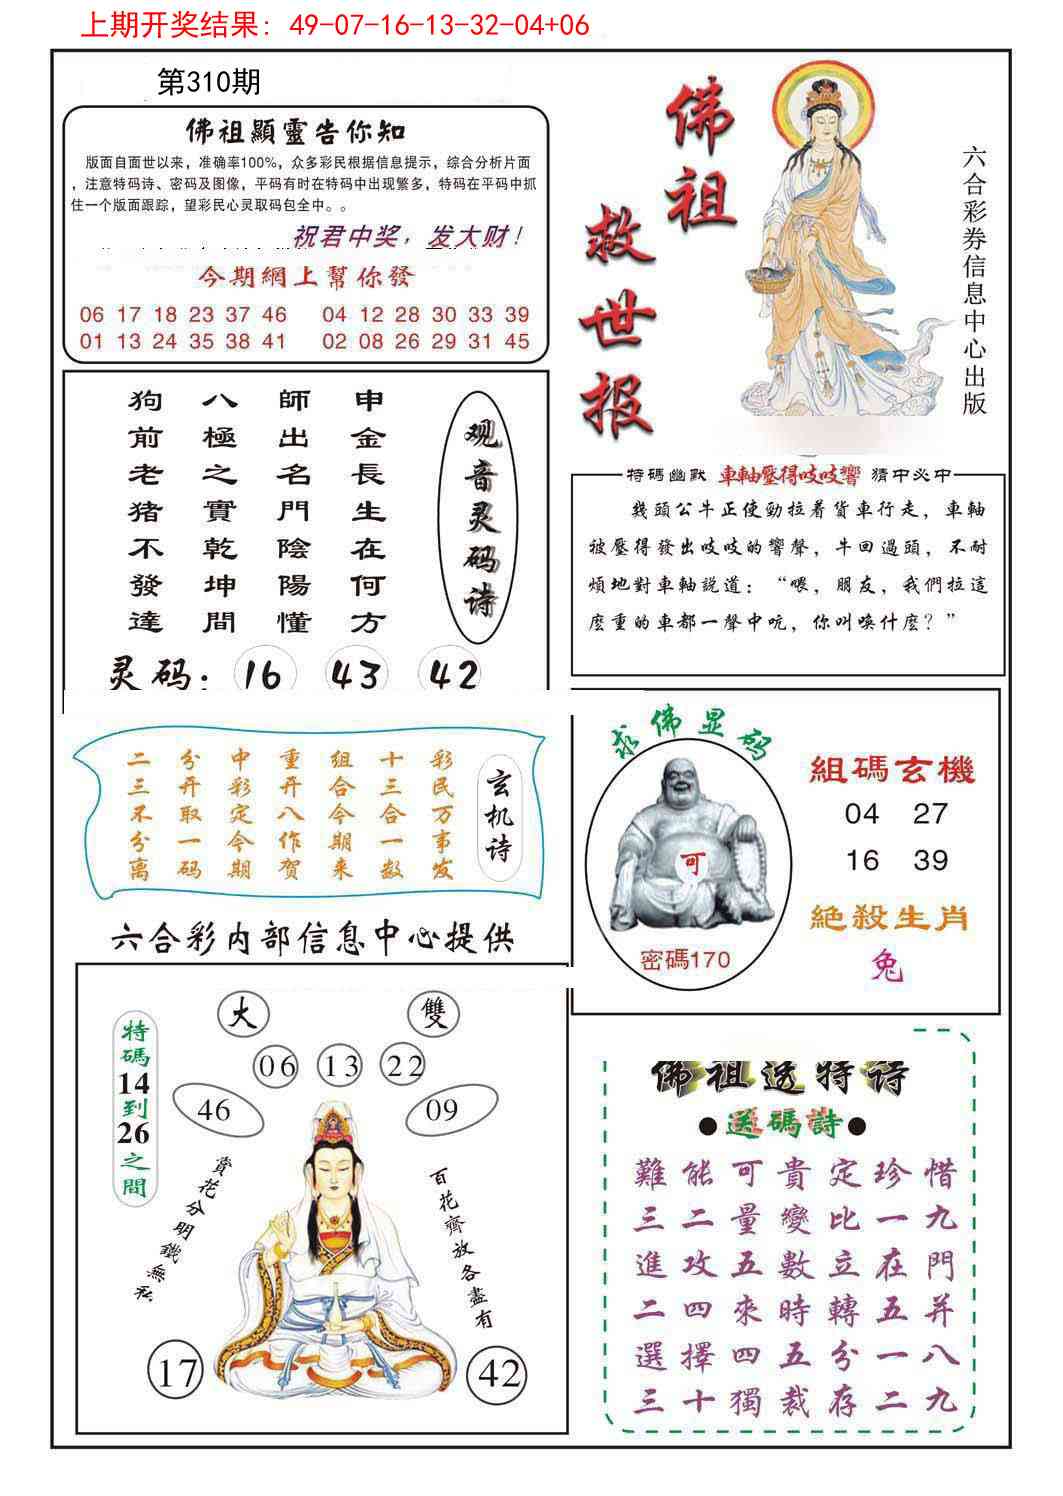 上期开奖结果: 49-07-16-13-32-04+06
第310期
佛祖顯靈告你知
版面自面世以来，准确率100%，众多彩民根据信息提示，综合分析片面
，注意特码诗、密码及图像，平码有时在特码中出现繁多，特码在平码中抓
住一个版面跟踪，望彩民心灵取码包全中。。
祝君中奖，发大财！
今期網上幫你發
06 17 18 23 37 46 04 12 28 30 33 39
01 13 24 35 38 41 02 08 26 29 31 45
佛祖救世报
六合彩券信息中心出版
观音灵码诗
申金長生在何方
師出名門陰陽懂
八極之實乾坤間
狗前老猪不發達
灵码：16 43 42
特碼幽默 車軸壓得吱吱響 猜中必中
幾頭公牛正使勁拉着貨車行走，車軸
被壓得發出吱吱的響聲，牛回過頭，不耐
煩地對車軸説道：“喂，朋友，我們拉這
麽重的車都一聲中吭，你叫唤什麽？”
玄机诗
彩民万事发
十三合一数
组合今期来
重开八作贺
中彩定今期
分开取一码
二三不分离
求佛显码
可
密碼170
組碼玄機
04 27
16 39
絕殺生肖
兔
六合彩内部信息中心提供
特碼14到26之間
大 雙
06 13 22
46 09
賞花分明鐵無私
百花齊放各盡有
17 42
佛祖透特诗
●送碼詩●
難能可貴定珍惜
三二量變比一九
進攻五數立在門
二四來時轉五并
選擇四五分一八
三十獨裁存二九